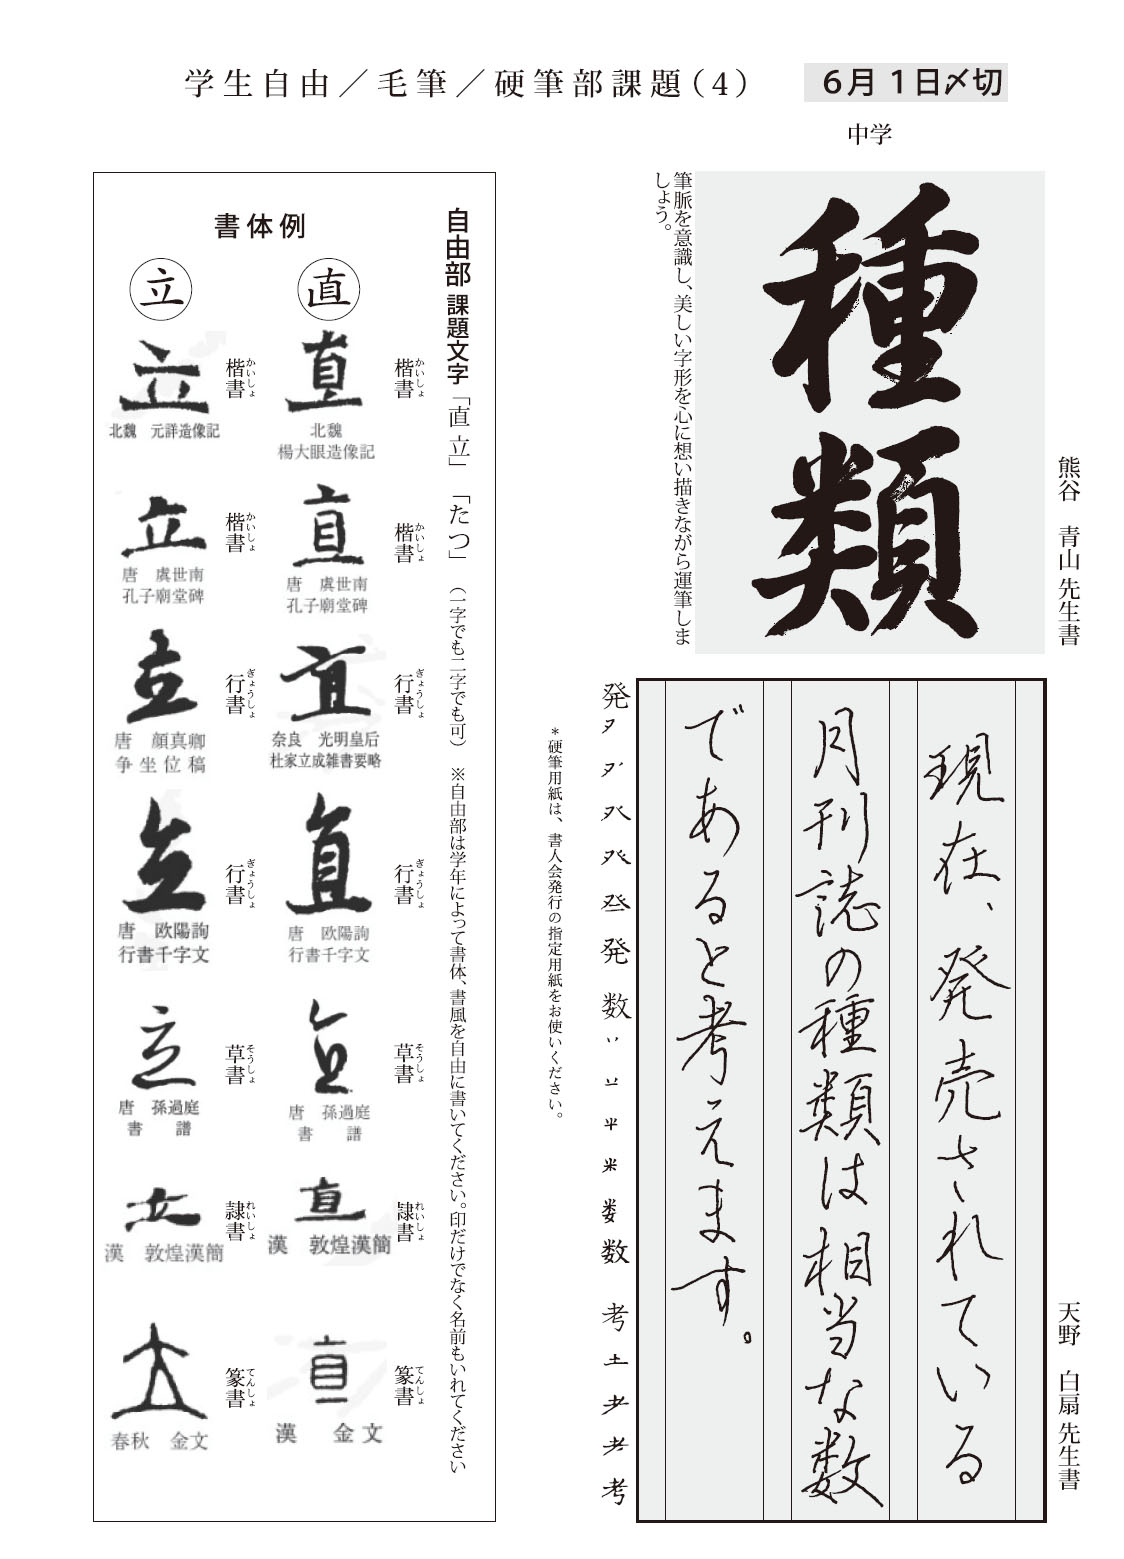 学生自由／毛筆／硬筆部課題(4)
6月1日〆切
中学
熊谷 青山 先生書
種類
筆脈を意識し、美しい字形を心に想い描きながら運筆しま
しょう。
天野 白扇 先生書
現在、発売されている
月刊誌の種類は相当な数
であると考えます。
発
発
数
数
考
土
考
＊硬筆用紙は、書人会発行の指定用紙をお使いください。
自由部 課題文字 「直立」 「たつ」 （一字でも二字でも可） ※自由部は学年によって書体、書風を自由に書いてください。印だけでなく名前もいれてください
書体例
直
直
楷書 かいしょ
北魏
楊大眼造像記
直
楷書 かいしょ
唐 虞世南
孔子廟堂碑
直
行書 ぎょうしょ
奈良 光明皇后
杜家立成雑書要略
直
行書 ぎょうしょ
唐 欧陽詢
行書千字文
直
草書 そうしょ
唐 孫過庭
書譜
直
隷書 れいしょ
漢 敦煌漢簡
直
篆書 てんしょ
漢 金文
立
立
楷書 かいしょ
北魏 元詳造像記
立
楷書 かいしょ
唐 虞世南
孔子廟堂碑
立
行書 ぎょうしょ
唐 顔真卿
争坐位稿
立
行書 ぎょうしょ
唐 欧陽詢
行書千字文
立
草書 そうしょ
唐 孫過庭
書譜
立
隷書 れいしょ
漢 敦煌漢簡
立
篆書 てんしょ
春秋 金文